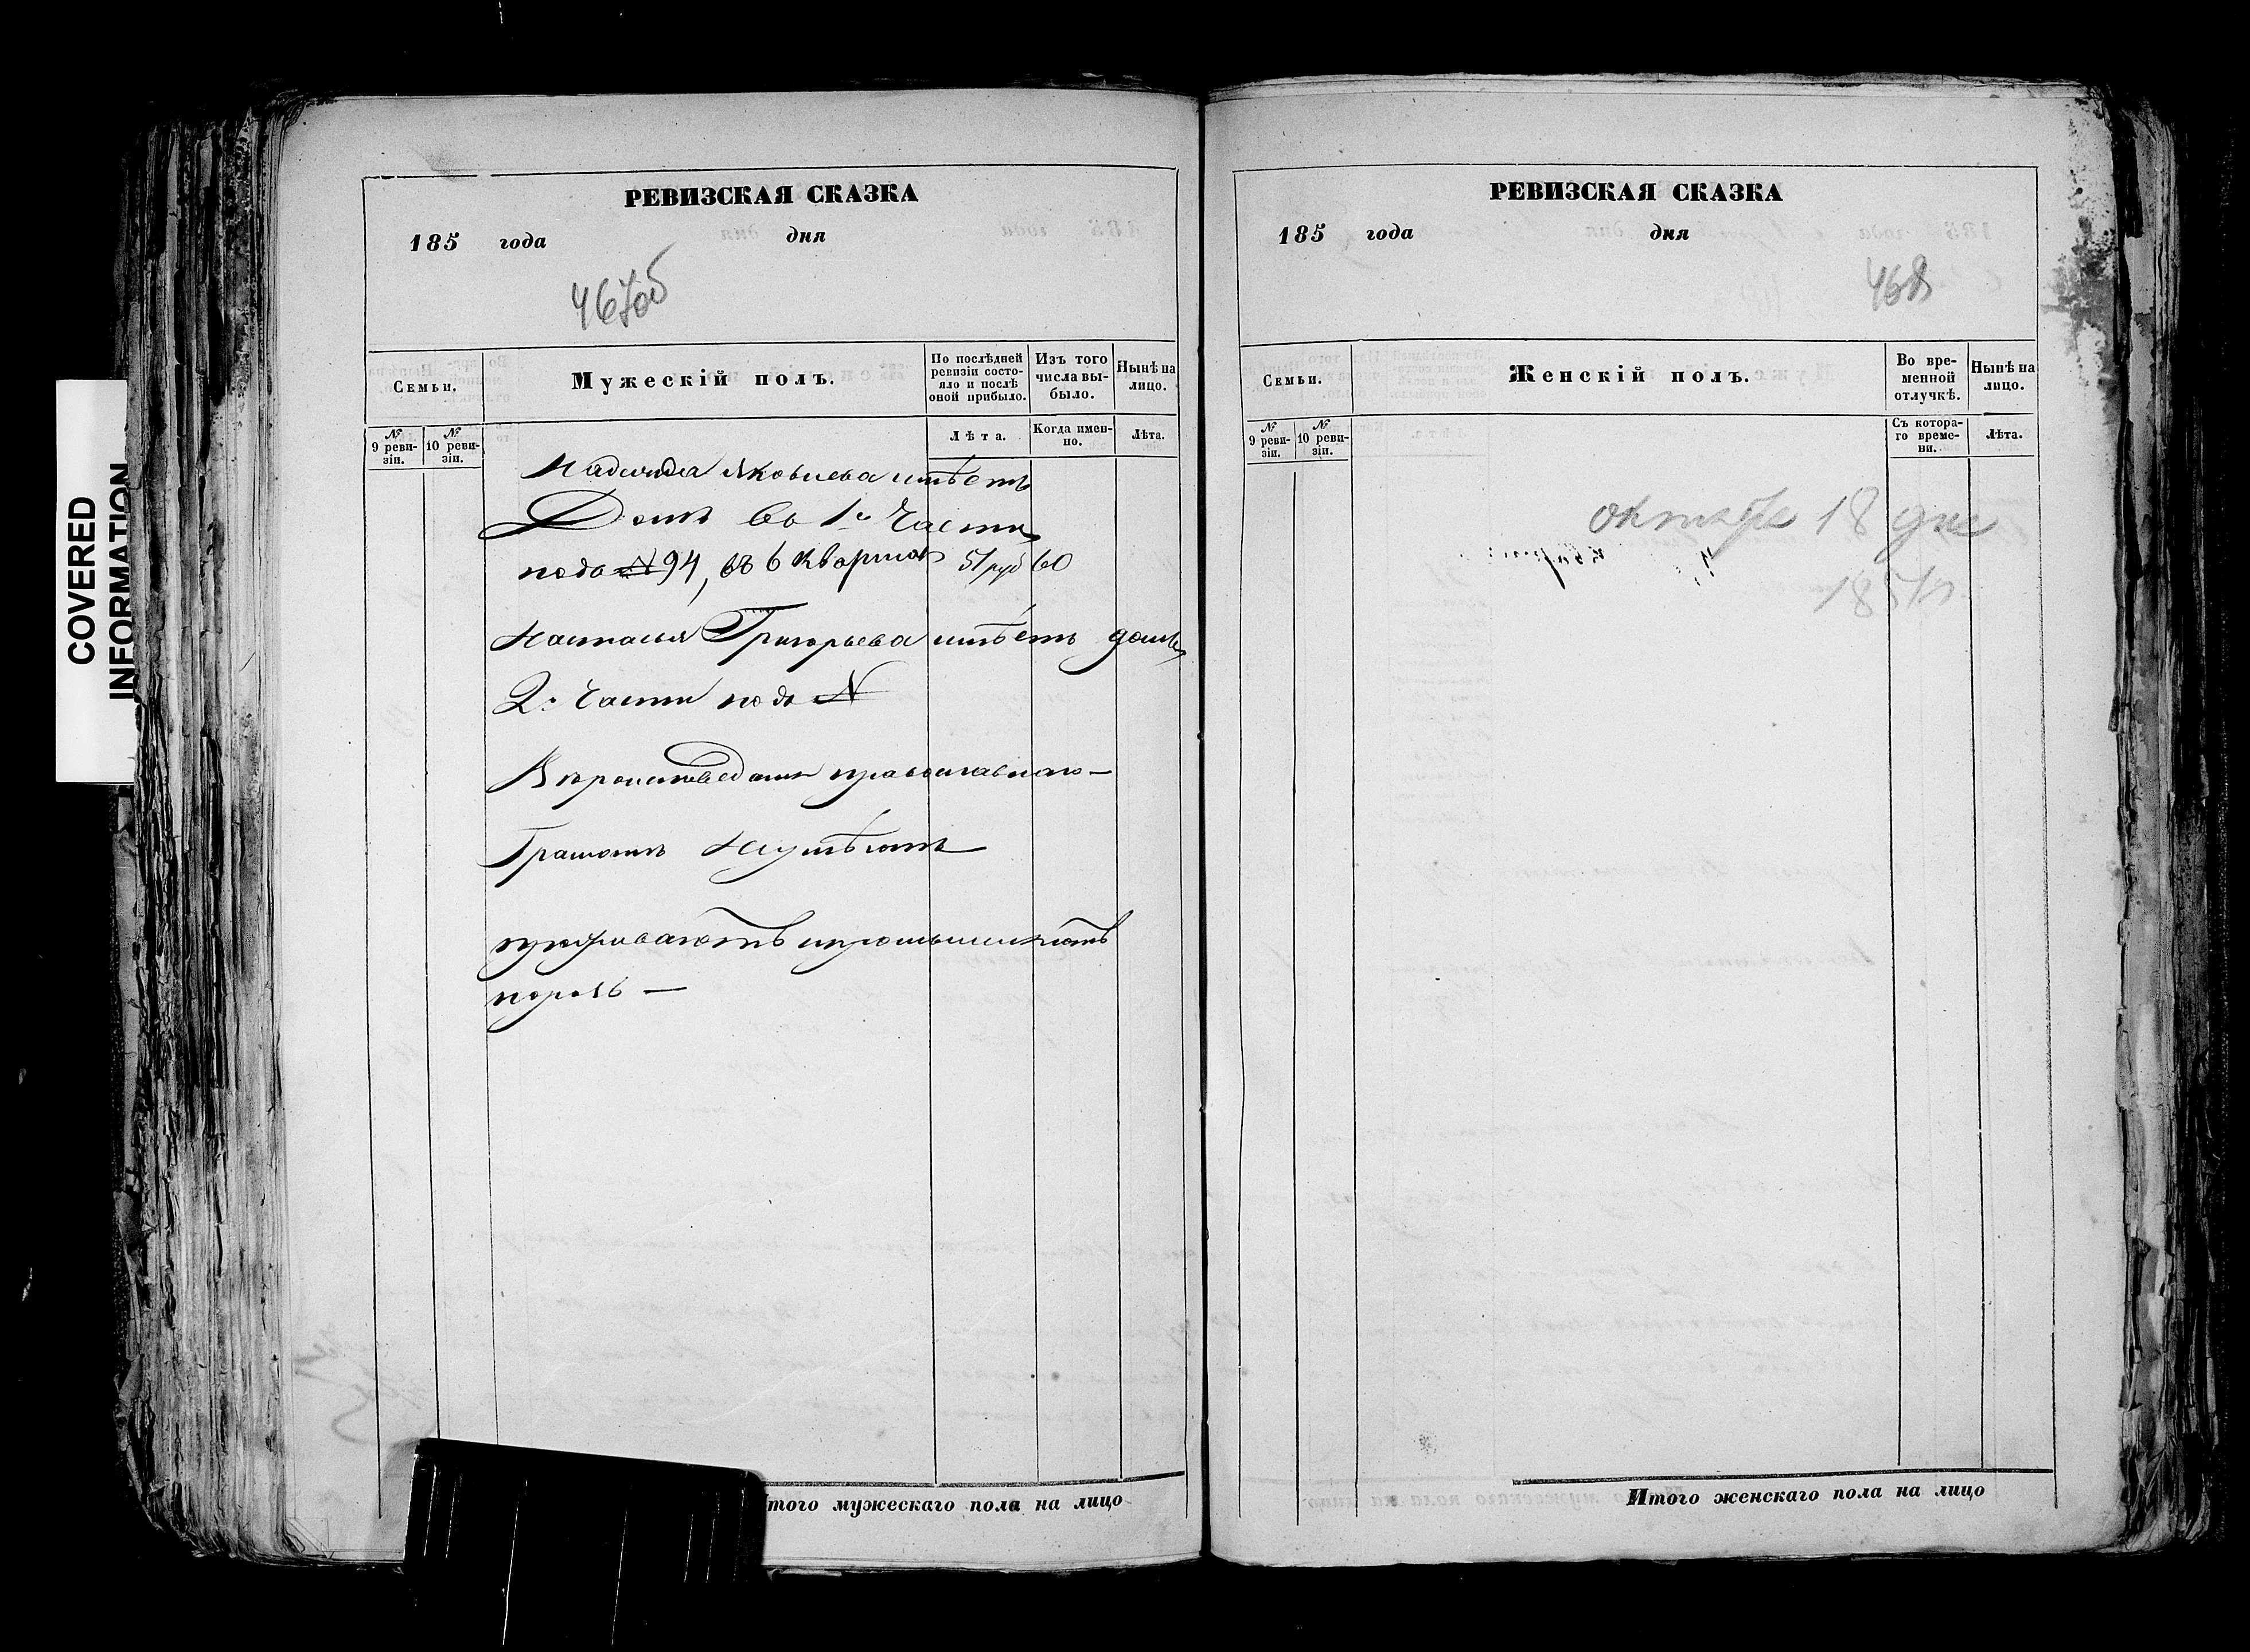 COVERED
INFORMATION
РЕВИЗСКАЯ СКАЗКА
185 года дня
467об
Семьи.
Мужескій полъ.
По послѣдней ревизіи состояло и послѣ оной прибыло.
Изъ того числа выбыло.
Нынѣ на лицо.
№ 9 ревизіи.
№ 10 ревизіи.
Лѣта.
Когда именно.
Лѣта.
Надежда Яковлева имѣетъ
Домъ во 1й Части
подъ № 94, въ 6 Квартал 51 руб 60
Настасья Григорьева имѣетъ домъ
2й Части подъ №
православнаго —
Грамотѣ неумѣютъ
Итого мужескаго пола на лицо
РЕВИЗСКАЯ СКАЗКА
185 года дня
468
Семьи.
Женскій полъ.
Во временной отлучкѣ.
Нынѣ на лицо.
№ 9 ревизіи.
№ 10 ревизіи.
Съ котораго времени.
Лѣта.
октября 18 дня
185
Итого женскаго пола на лицо